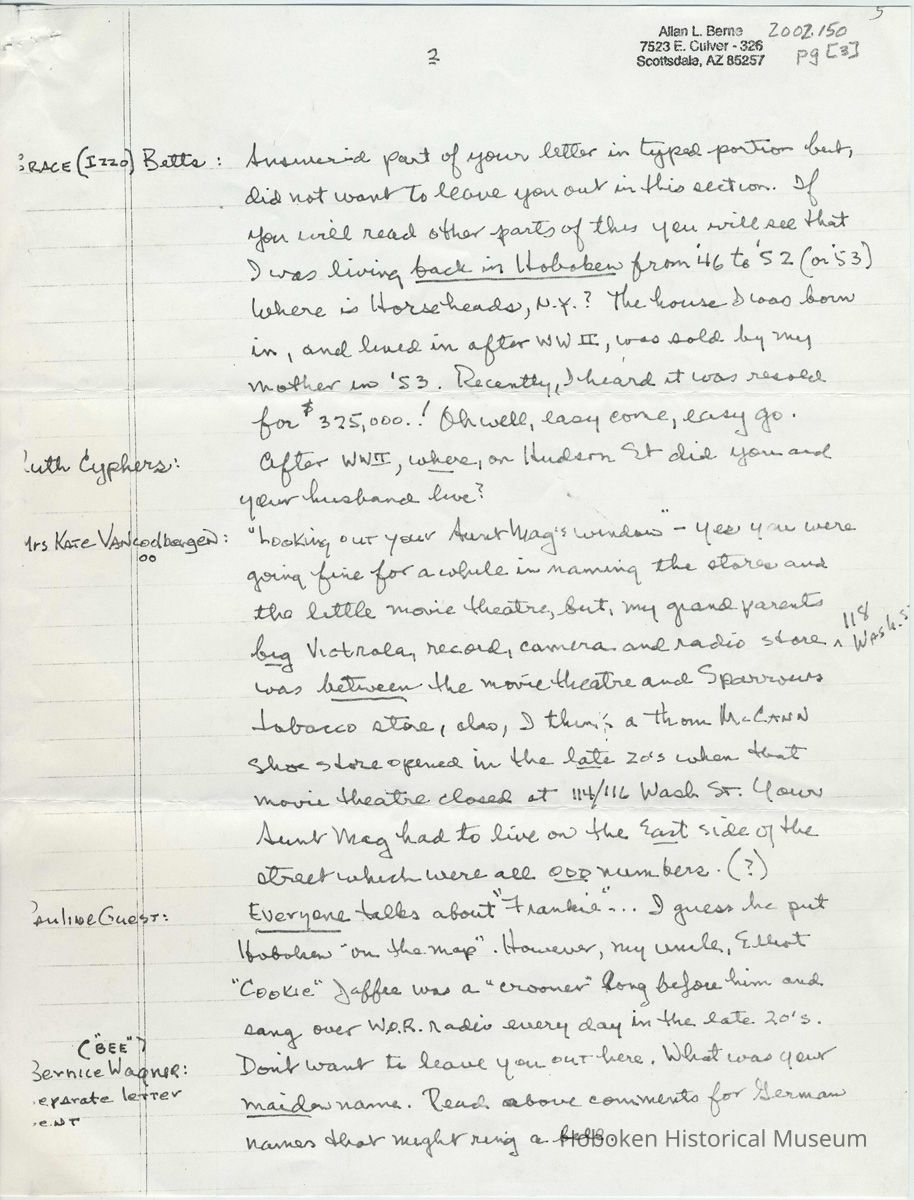 5
Allan L. Berne
7523 E. Culver - 326
Scottsdale, AZ 85257
2002.150
pg [3]
2
GRACE (Izzo) Betts: Answered part of your letter in typed portion but,
did not want to leave you out in this section. If
you will read other parts of this you will see that
I was living back in Hoboken from '46 to '52 (or '53)
Where is Horseheads, N.Y.? The house I was born
in, and lived in after WW II, was sold by my
mother in '53. Recently, I heard it was resold
for $325,000.! Oh well, easy come, easy go.
Ruth Cyphers: After WWII, where, on Hudson St did you and
your husband live?
Mrs Kate Van "Looking out your Aunt Mag's window" - yes you were
oo
going fine for a while in naming the stores and
the little movie theatre, but, my grandparents
big Victrola, record, camera and radio store ^ 118 Wash. St
was between the movie theatre and Sparrows
tobacco store, also, I think a Thom McCANN
shoe store opened in the late 20's when that
movie theatre closed at 114/116 Wash St. Your
Aunt Mag had to live on the East side of the
street which were all ODD numbers. (?)
Pauline Guest: Everyone talks about "Frankie"... I guess he put
Hoboken "on the map". However, my uncle, Elliot
"Cookie" Jaffee was a "crooner" long before him and
sang over W.O.R. radio every day in the late 20's.
("BEE")
Bernice Wagner: Don't want to leave you out here. What was your
separate letter maiden name. Read above comments for German
sent names that might ring a bell.
Hoboken Historical Museum